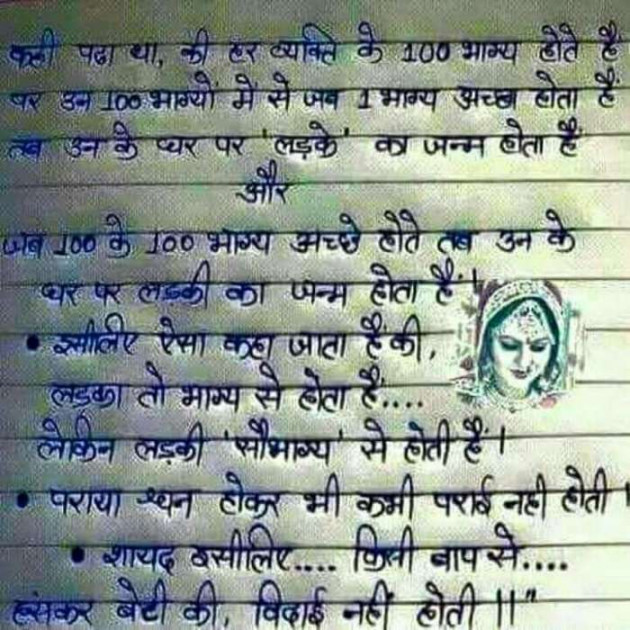 कही पढा था, की हर व्यक्ति के 100 भाग्य होते हैं
पर उन 100 भाग्यों में से जब 1 भाग्य अच्छा होता हैं
तब उन के घर पर 'लड़के' का जन्म होता हैं
और
जब 100 के 100 भाग्य अच्छे होते तब उन के
घर पर लडकी का जन्म होता हैं !
• इसीलिए ऐसा कहा जाता हैं की,
लड़का तो भाग्य से होता हैं....
लेकिन लड़की 'सौभाग्य' से होती हैं ।
• पराया धन होकर भी कभी पराई नही होती ।
• शायद इसीलिए.... किसी बाप से....
हसंकर बेटी की, विदाई नहीं होती ||"